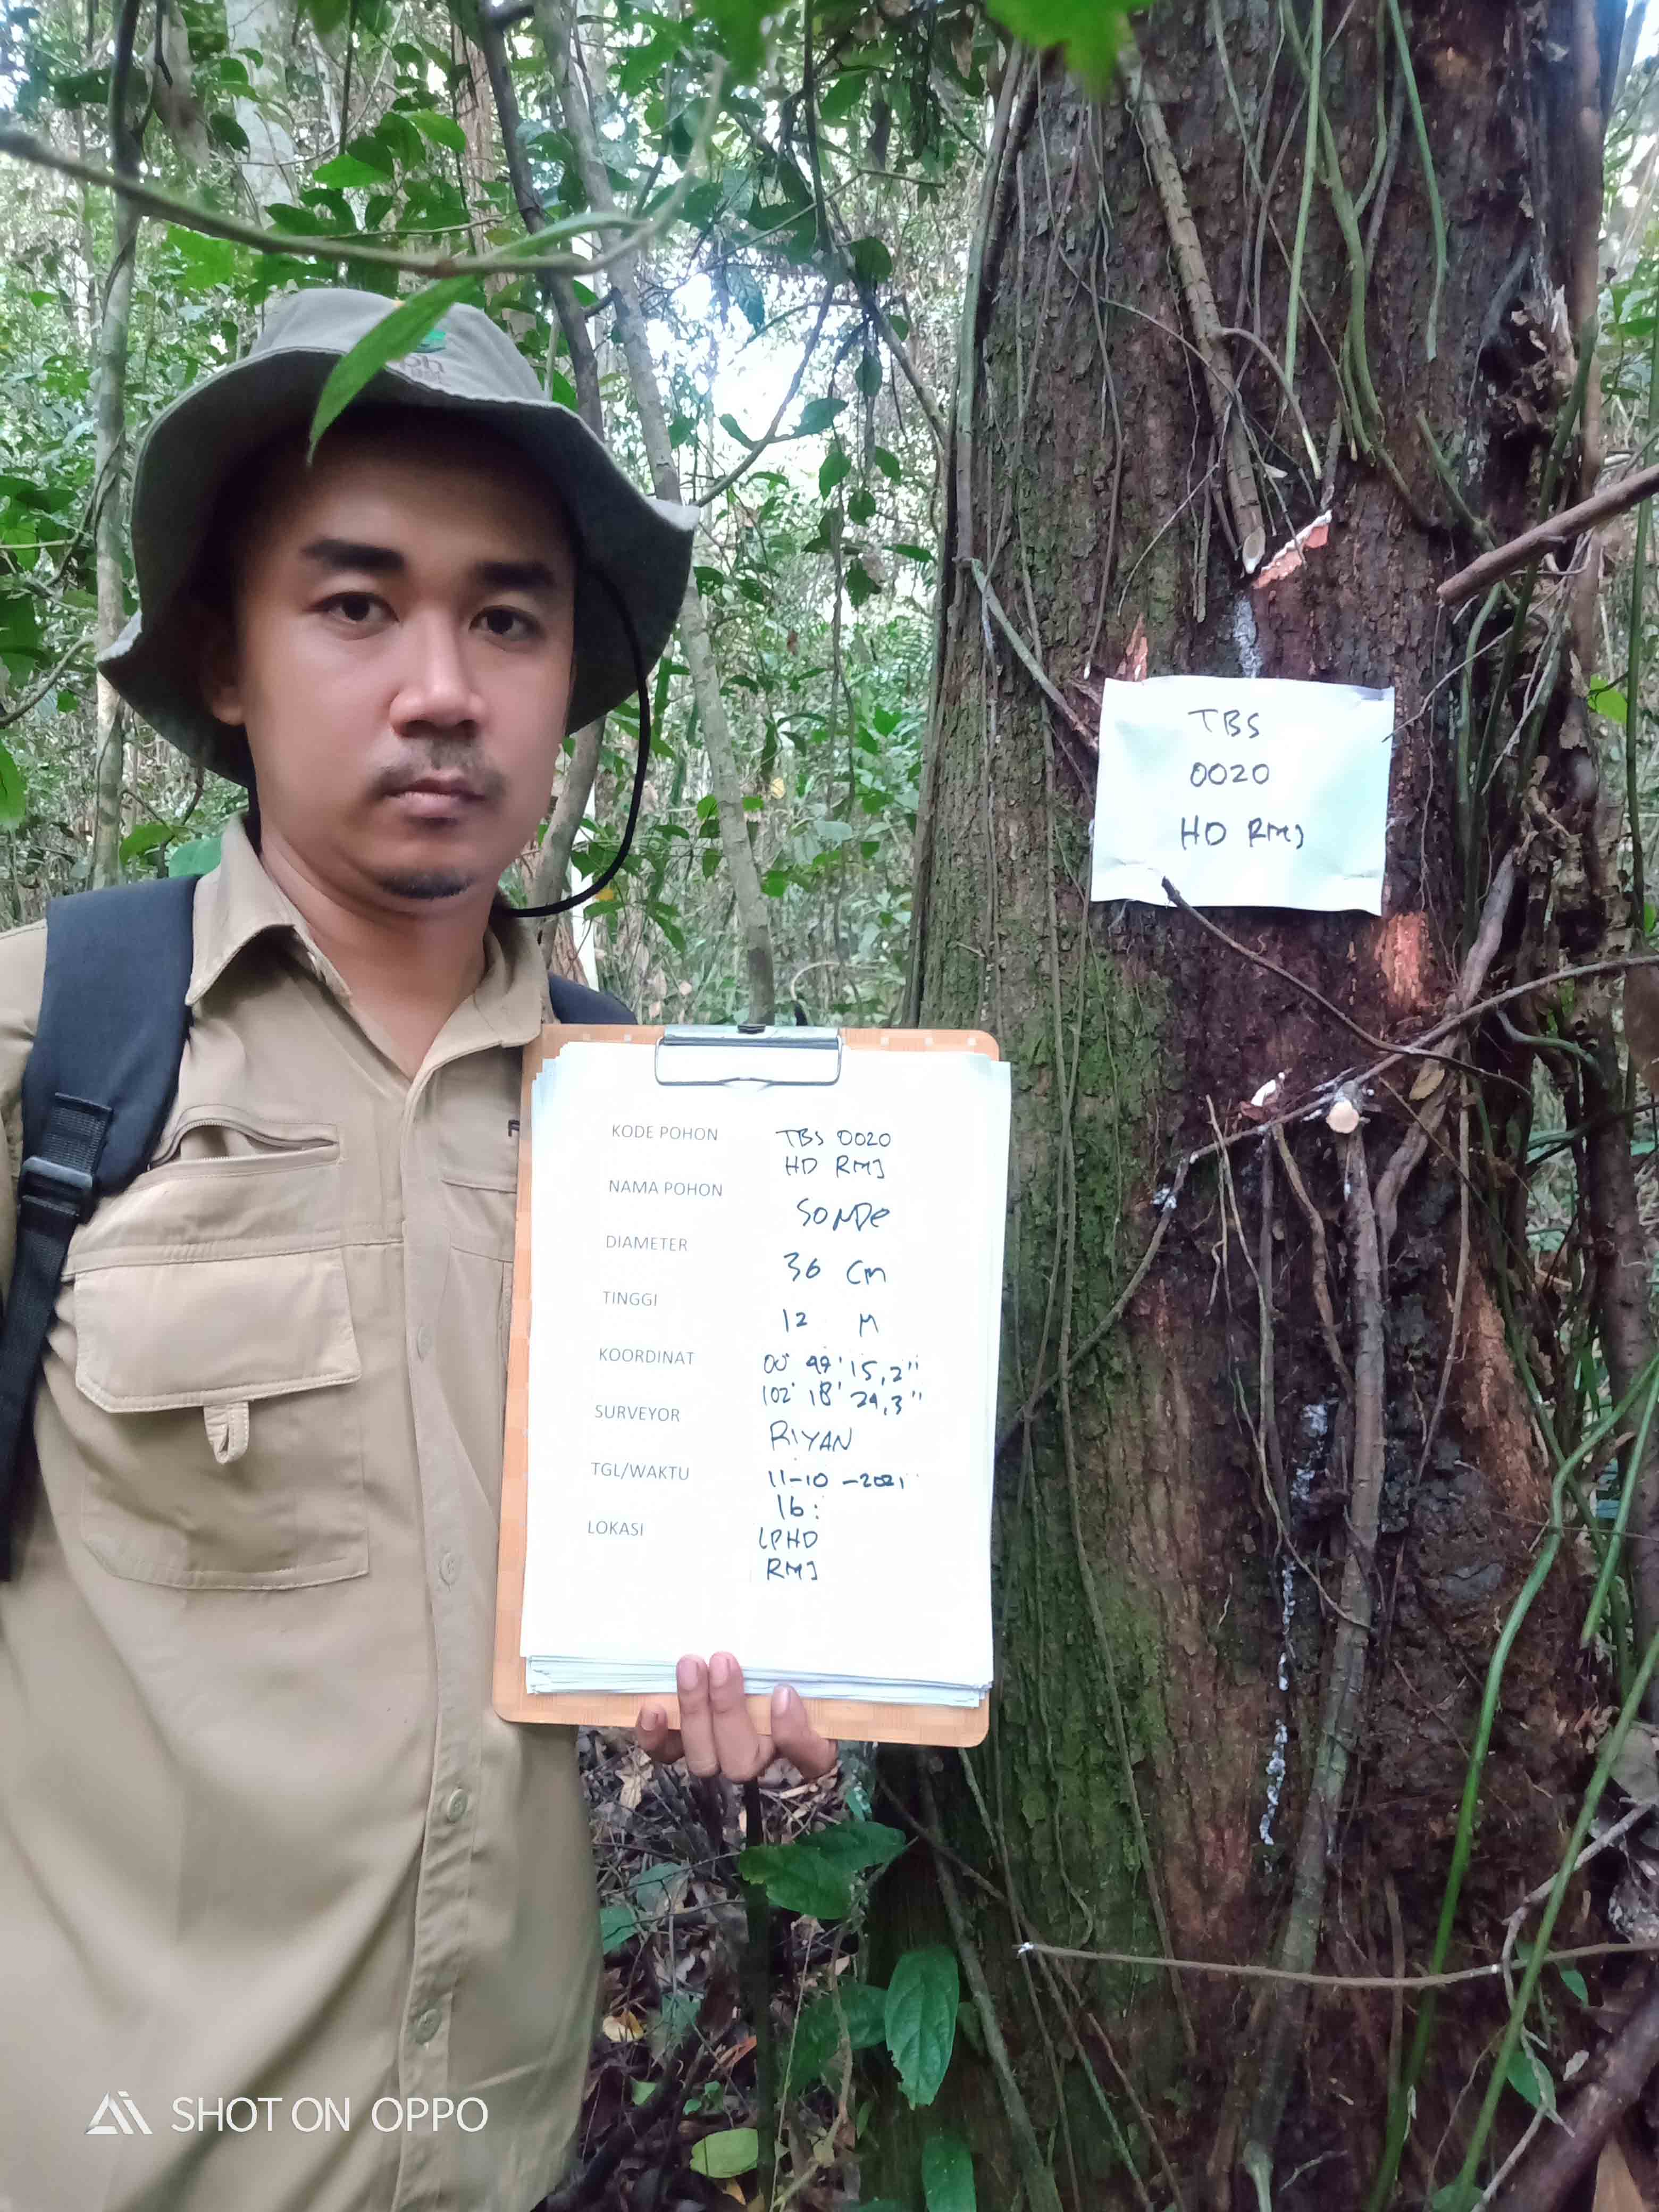 TBS
0020
HD RMJ
KODE POHON TBS 0020
HD RMJ
NAMA POHON SONDE
DIAMETER 36 CM
TINGGI 12 M
KOORDINAT 00° 49' 15,2"
102° 18' 24,3"
SURVEYOR RIYAN
TGL/WAKTU 11-10-2021
16:
LOKASI LPHD
RMJ
SHOT ON OPPO